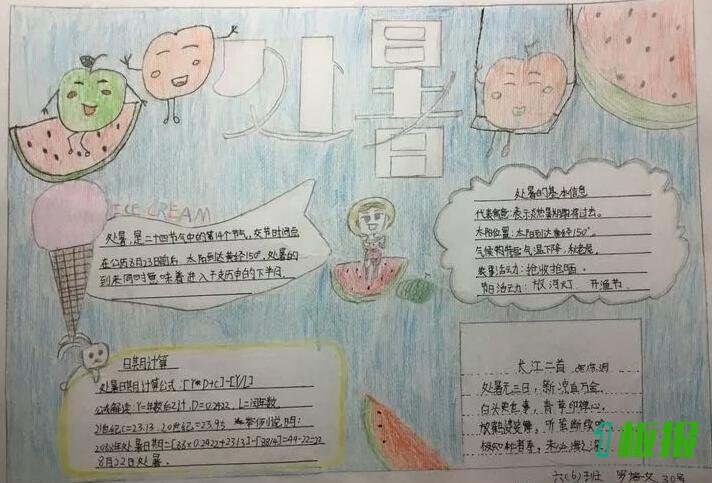 处暑
ICE CREAM
处暑,是二十四节气中的第14个节气,交节时间点
在公历8月23日前后,太阳到达黄经150°。处暑的
到来同时意味着进入干支历申的下半月
处暑的基本信息
代表寓意:表示炎热暑期即将过去。
太阳位置:太阳到达黄经150°。
气候特征:气温下降,秋老虎。
农事活动:抢收抢晒
节日活动:放河灯 开渔节
日期计算
处暑日期计算公式:[Y*D+C]-[Y/L]
公式解读:Y=年数后2计,D=0.2422,L=闰年数,
21世纪C=23.13,20世纪C=23.95 *举例说明:
2088年处暑日期=[88×0.2422+23.13]-[88/4]=44-22=22
8月22日处暑。
长江二首
处暑无三日,新凉直万金。
白头更世事,青草印禅心。
放鹤婆娑舞,听蛩断续吟。
极知仁者寿,未必海之深
板报
六(6)班 罗 文 30号